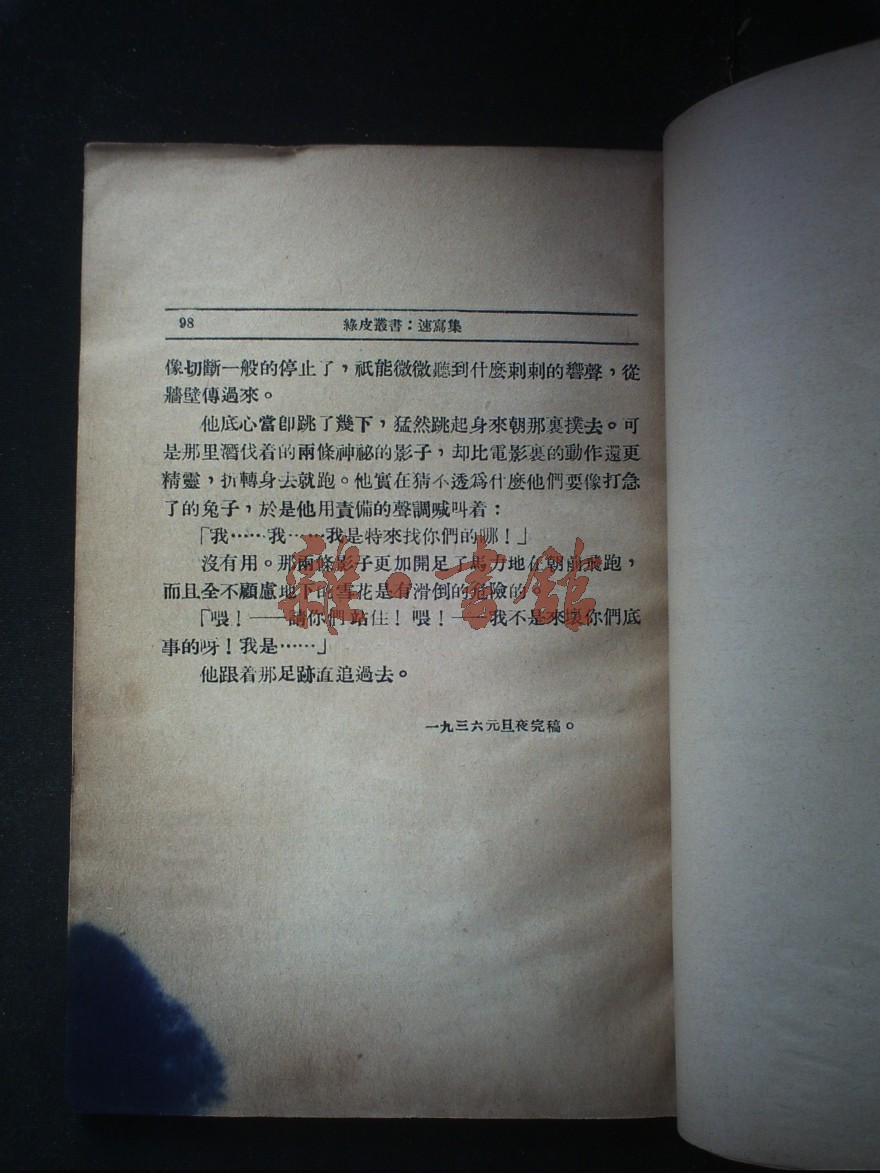 98
綠皮叢書：速寫集
像切斷一般的停止了，祇能微微聽到什麼刺刺的響聲，從
牆壁傳過來。
他底心當卽跳了幾下，猛然跳起身來朝那裏撲去。可
是那里潛伏着的兩條神祕的影子，却比電影裏的動作還更
精靈，折轉身去就跑。他實在猜不透爲什麼他們要像打急
了的兔子，於是他用責備的聲調喊叫着：
「我……我……我是特來找你們的哪！」
沒有用。那兩條影子更加開足了馬力地在朝前飛跑，
而且全不顧慮地下的雪花是有滑倒的危險的。
「喂！——請你們站住！喂！——我不是來壞你們底
事的呀！我是……」
他跟着那足跡直追過去。
一九三六元旦夜完稿。
雜·書館